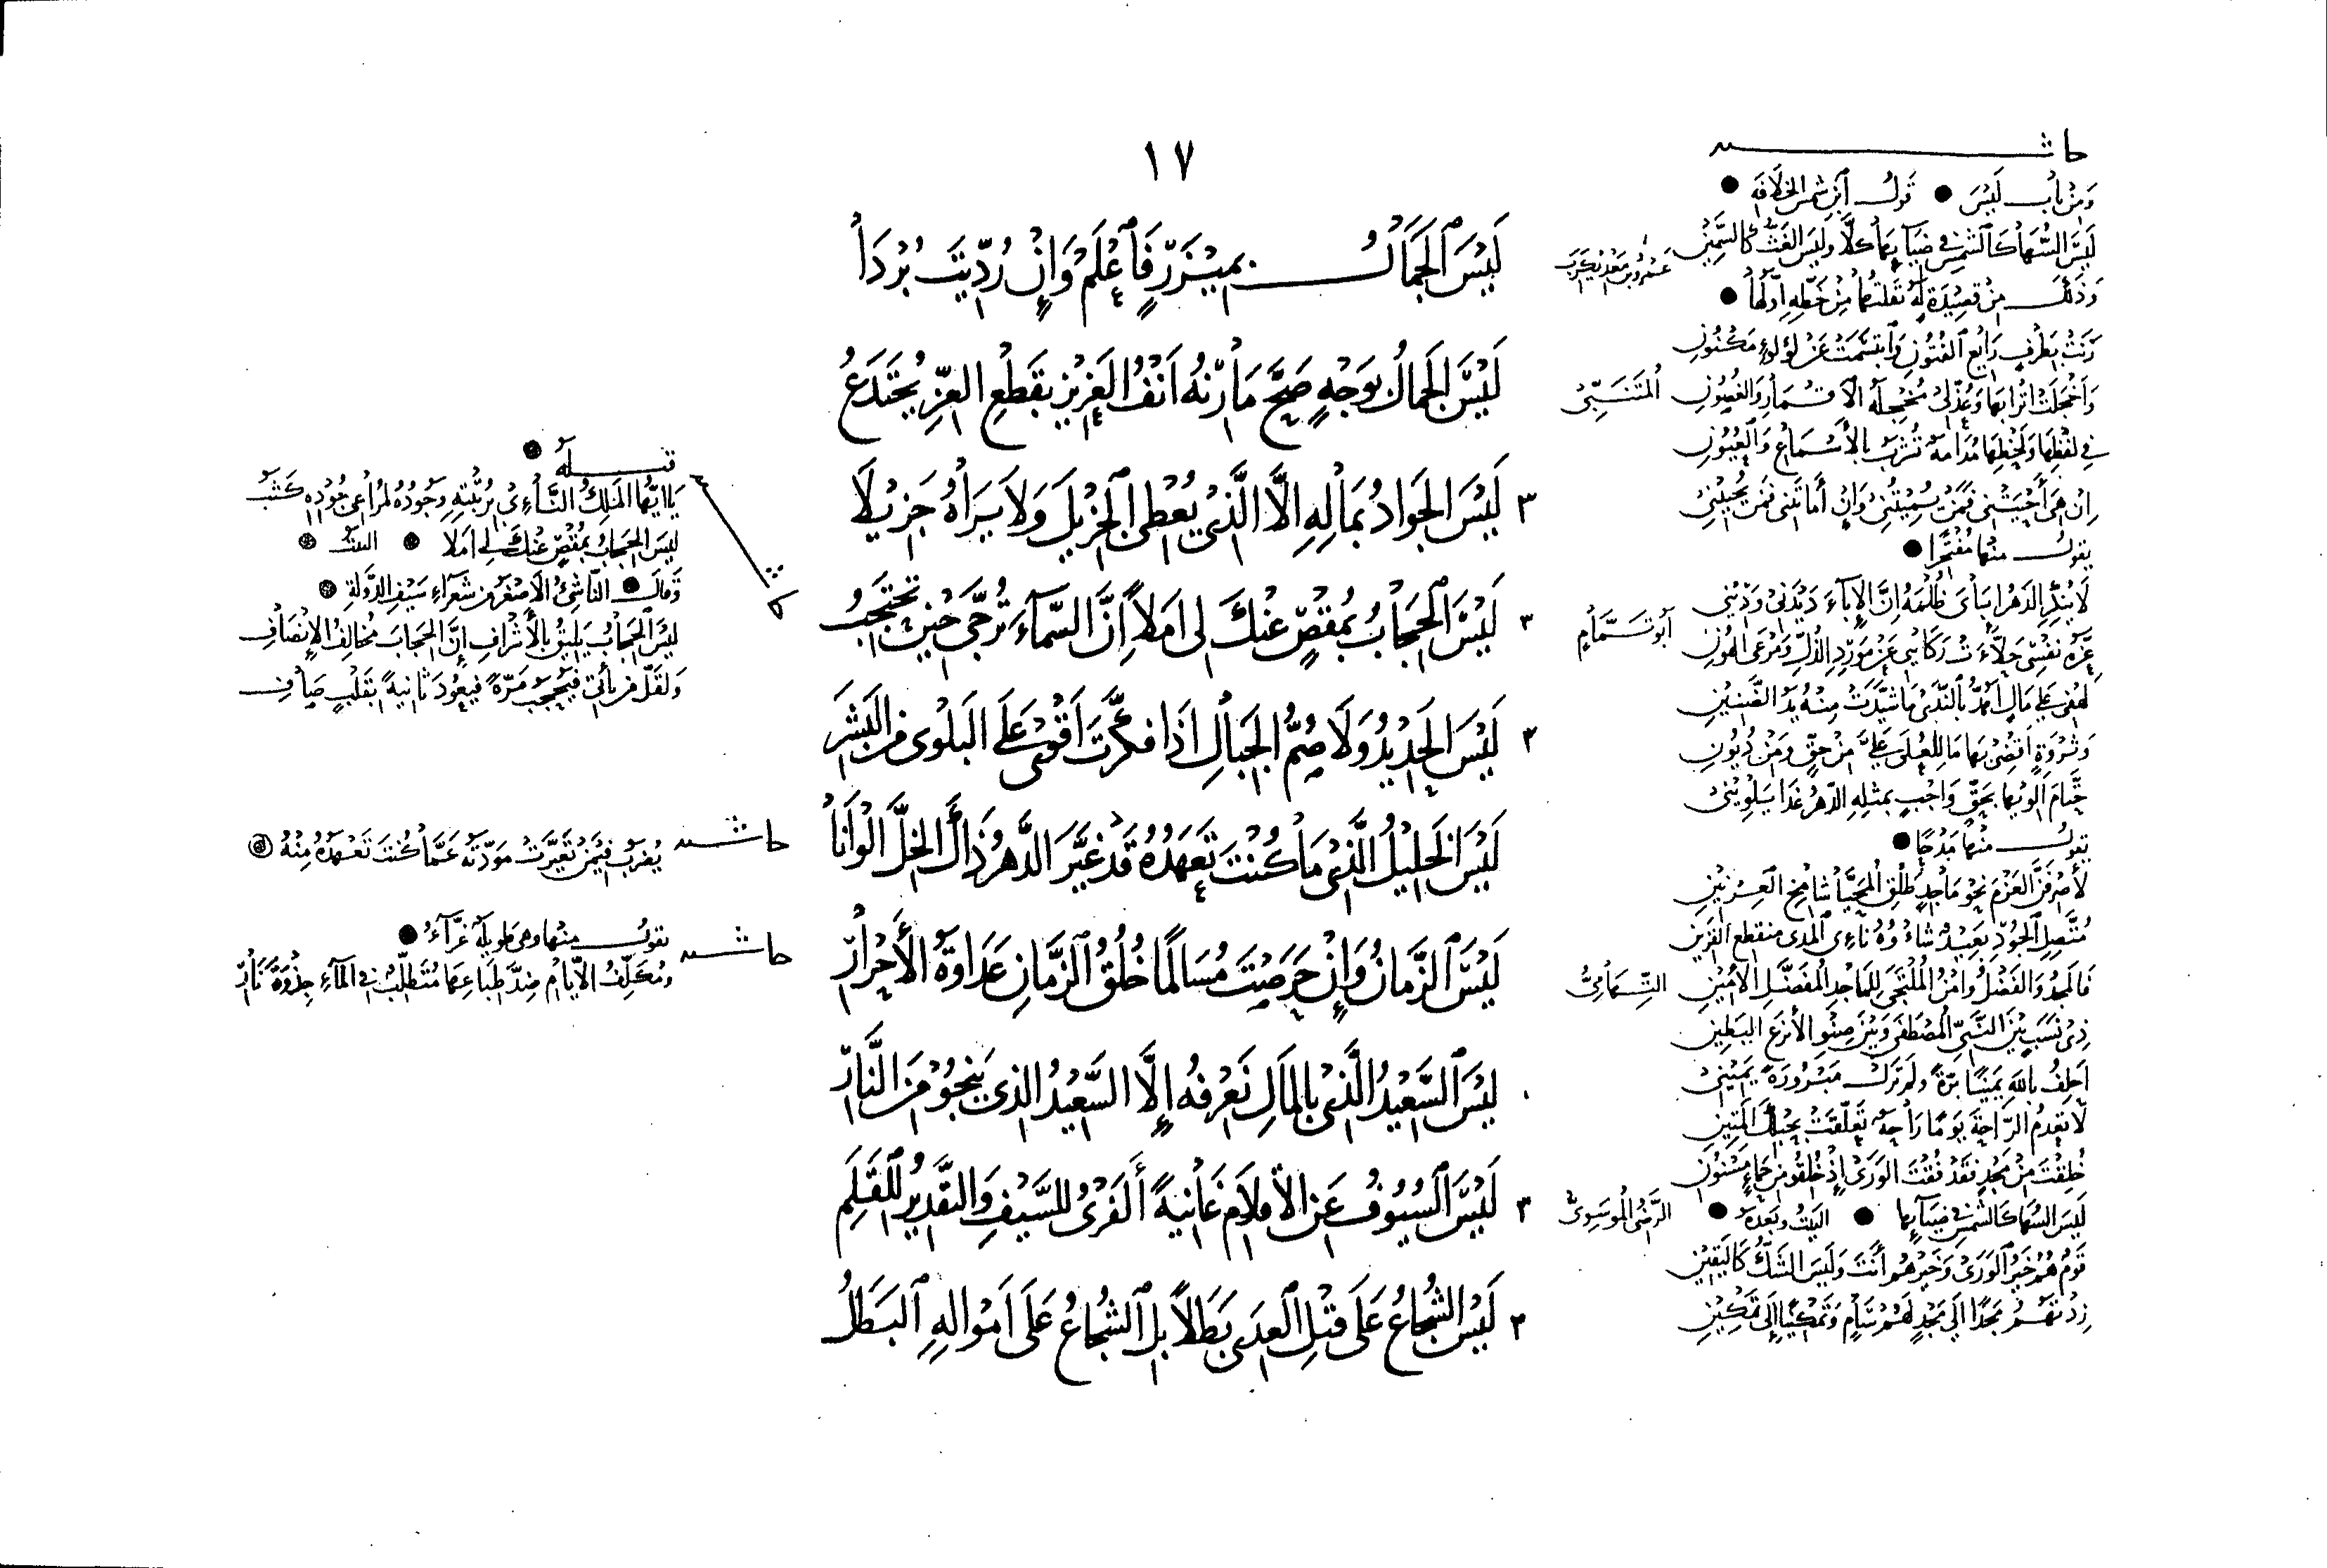 ١٧
لَيْسَ الْجَمَالُ بِمِئْزَرٍ فَاعْلَمْ وَإِنْ رُدِّيتَ بُرْدَا
لَيْسَ الْجَمَالُ لِوَجْهٍ صَحَّ مَارِنُهُ أَنْفُ الْعَزِيزِ بِقَطْعِ الْعِزِّ يُجْتَدَعُ
٣ لَيْسَ الْجَوَادُ بِمَالِهِ إِلَّا الَّذِي يُعْطِي الْجَزِيلَ وَلَا يَرَاهُ جَزِيلَا
٣ لَيْسَ الْحِجَابُ بِمُقْصٍ عَنْكَ لِي أَمَلًا إِنَّ السَّمَاءَ تُرَجَّى حِينَ تَحْتَجِبُ
٣ لَيْسَ الْحَدِيدُ وَلَا صُمُّ الْجِبَالِ إِذَا فَكَّرْتَ أَقْوَى عَلَى الْبَلْوَى مِنَ الْبَشَرِ
لَيْسَ الْخَلِيلُ الَّذِي مَا كُنْتَ تَعْهَدُهُ قَدْ غَيَّرَ الدَّهْرُ ذَاكَ الْخِلَّ أَلْوَانَا
لَيْسَ الزَّمَانُ وَإِنْ حَرَصْتَ مُسَالِمًا خُلُقُ الزَّمَانِ عَدَاوَةُ الْأَحْرَارِ
لَيْسَ السَّعِيدُ الَّذِي بِالْمَالِ نَعْرِفُهُ إِلَّا السَّعِيدُ الَّذِي يَنْجُو مِنَ النَّارِ
٣ لَيْسَ السُّيُوفُ عَنِ الْأَقْلَامِ غَانِيَةً الْفَرْيُ لِلسَّيْفِ وَالتَّقْدِيرُ لِلْقَلَمِ
٣ لَيْسَ الشُّجَاعُ عَلَى قَتْلِ الْعِدَى بَطَلًا بَلِ الشُّجَاعُ عَلَى أَمْوَالِهِ الْبَطَلُ
عَمْرُو بْنُ مَعْدِيكَرِبَ
الْمُتَنَبِّي
أَبُو تَمَّامٍ
التِّهَامِيُّ
الرَّضِيُّ الْمُوسَوِيُّ
حاشية
وَمِنْ بَابِ لَيْسَ قَوْلُ ابْنِ شَمْسِ الْخِلَافَةِ
لَيْسَ السُّهَا كَالشَّمْسِ فِي ضِيَائِهَا كَلَّا وَلَيْسَ الْغَثُّ كَالسَّمِينِ
وَذَلِكَ مِنْ قَصِيدَةٍ لَهُ نَقَلْتُهَا مِنْ خَطِّهِ أَوَّلُهَا
رَنَتْ بِطَرْفٍ رَائِعِ الْفُتُونِ وَابْتَسَمَتْ عَنْ لُؤْلُؤٍ مَكْنُونِ
وَأَخْجَلَتْ أَتْرَابَهَا مُخْجِلَةُ الْأَقْمَارِ وَالْغُصُونِ
فِي لَفْظِهَا وَلَحْظِهَا مُدَامَةٌ تُشْرَبُ بِالْأَسْمَاعِ وَالْعُيُونِ
إِنْ هِيَ أَحْيَتْنِي فَمَنْ يُمِيتُنِي وَإِنْ أَمَاتَتْنِي فَمَنْ يُحْيِينِي
يَقُولُ مِنْهَا مُفْتَخِرًا
لَا يُنْكِرِ الدَّهْرُ إِبَائِي ظُلْمَهُ إِنَّ الْإِبَاءَ دَيْدَنِي وَدِينِي
عِزَّةُ نَفْسِي حَلَّأَتْ رَكَائِبِي عَنْ مَوْرِدِ الذُّلِّ وَمَرْعَى الْهُونِ
لَهْفِي عَلَى مَالٍ أَهُدُّ بِالنَّدَى مَا شَيَّدَتْ مِنْهُ يَدُ الضَّنِينِ
وَثَرْوَةٍ أَقْضِي بِهَا مَا لِلْعُلَى عَلَيَّ مِنْ حَقٍّ وَمِنْ دُيُونِ
حَتَّامَ أَلْوِيهَا بِحَقٍّ وَاجِبٍ بِمِثْلِهِ الدَّهْرُ غَدَا يَلْوِينِي
يَقُولُ مِنْهَا مَدْحًا
لَأَصْرِفَنَّ الْعَزْمَ نَحْوَ مَاجِدٍ طَلْقِ الْمُحَيَّا شَامِخِ الْعِرْنِينِ
مُتَّصِلِ الْجُودِ بَعِيدٌ شَأْوُهُ نَائِي الْمَدَى مُنْقَطِعِ الْقَرِينِ
فَالْمَجْدُ وَالْفَضْلُ وَأَمْنُ الْمُلْتَجِي لِلْمَاجِدِ الْمُفَضَّلِ الْأَمِينِ
ذِي نَسَبٍ بَيْنَ النَّبِيِّ الْمُصْطَفَى وَبَيْنَ صِنْوِ الْأَنْزَعِ الْبَطِينِ
أَحْلِفُ بِاللَّهِ يَمِينًا بَرَّةً وَلَمْ تَزَلْ مَبْرُورَةً يَمِينِي
لَا تَعْدِمُ الرَّاحَةَ يَوْمًا رَاحَةٌ تَعَلَّقَتْ بِحَبْلِكَ الْمَتِينِ
خُلِقْتَ مِنْ مَجْدٍ فَقَدْ فُقْتَ الْوَرَى إِذْ خُلِقُوا مِنْ حَمَإٍ مَسْنُونِ
لَيْسَ السُّهَا كَالشَّمْسِ فِي ضِيَائِهَا الْبَيْتُ وَبَعْدَهُ
قَوْمٌ هُمْ خَيْرُ الْوَرَى وَخَيْرُهُمْ أَنْتَ وَلَيْسَ الشَّكُّ كَالْيَقِينِ
زِدْتَهُمْ مَجْدًا إِلَى مَجْدٍ لَهُمْ سَامٍ وَتَمْكِينًا إِلَى تَمْكِينِ
قَبْلَهُ
يَا أَيُّهَا الْمَلِكُ النَّائِي بِرُتْبَتِهِ وَجُودُهُ لِمُرَاعِي جُودِهِ كَثَبُ
لَيْسَ الْحِجَابُ بِمُقْصٍ عَنْكَ لِي أَمَلًا الْبَيْتُ
وَقَالَ النَّاشِئُ الْأَصْغَرُ مِنْ شُعَرَاءِ سَيْفِ الدَّوْلَةِ
لَيْسَ الْحِجَابُ يَلِيقُ بِالْأَشْرَافِ إِنَّ الْحِجَابَ مُخَالِفُ الْإِنْصَافِ
وَلَقَلَّ مَنْ يَأْتِي فَيُحْجَبُ مَرَّةً فَيَعُودُ ثَانِيَةً بِقَلْبٍ صَافِ
حاشية يُضْرَبُ فِيمَنْ تَغَيَّرَتْ مَوَدَّتُهُ عَمَّا كُنْتَ تَعْهَدُهُ مِنْهُ
حاشية يَقُولُ مِنْهَا وَهِيَ طَوِيلَةٌ غَرَّاءُ
وَمُكَلِّفُ الْأَيَّامِ ضِدَّ طِبَاعِهَا مُتَطَلِّبٌ فِي الْمَاءِ جُذْوَةَ نَارِ